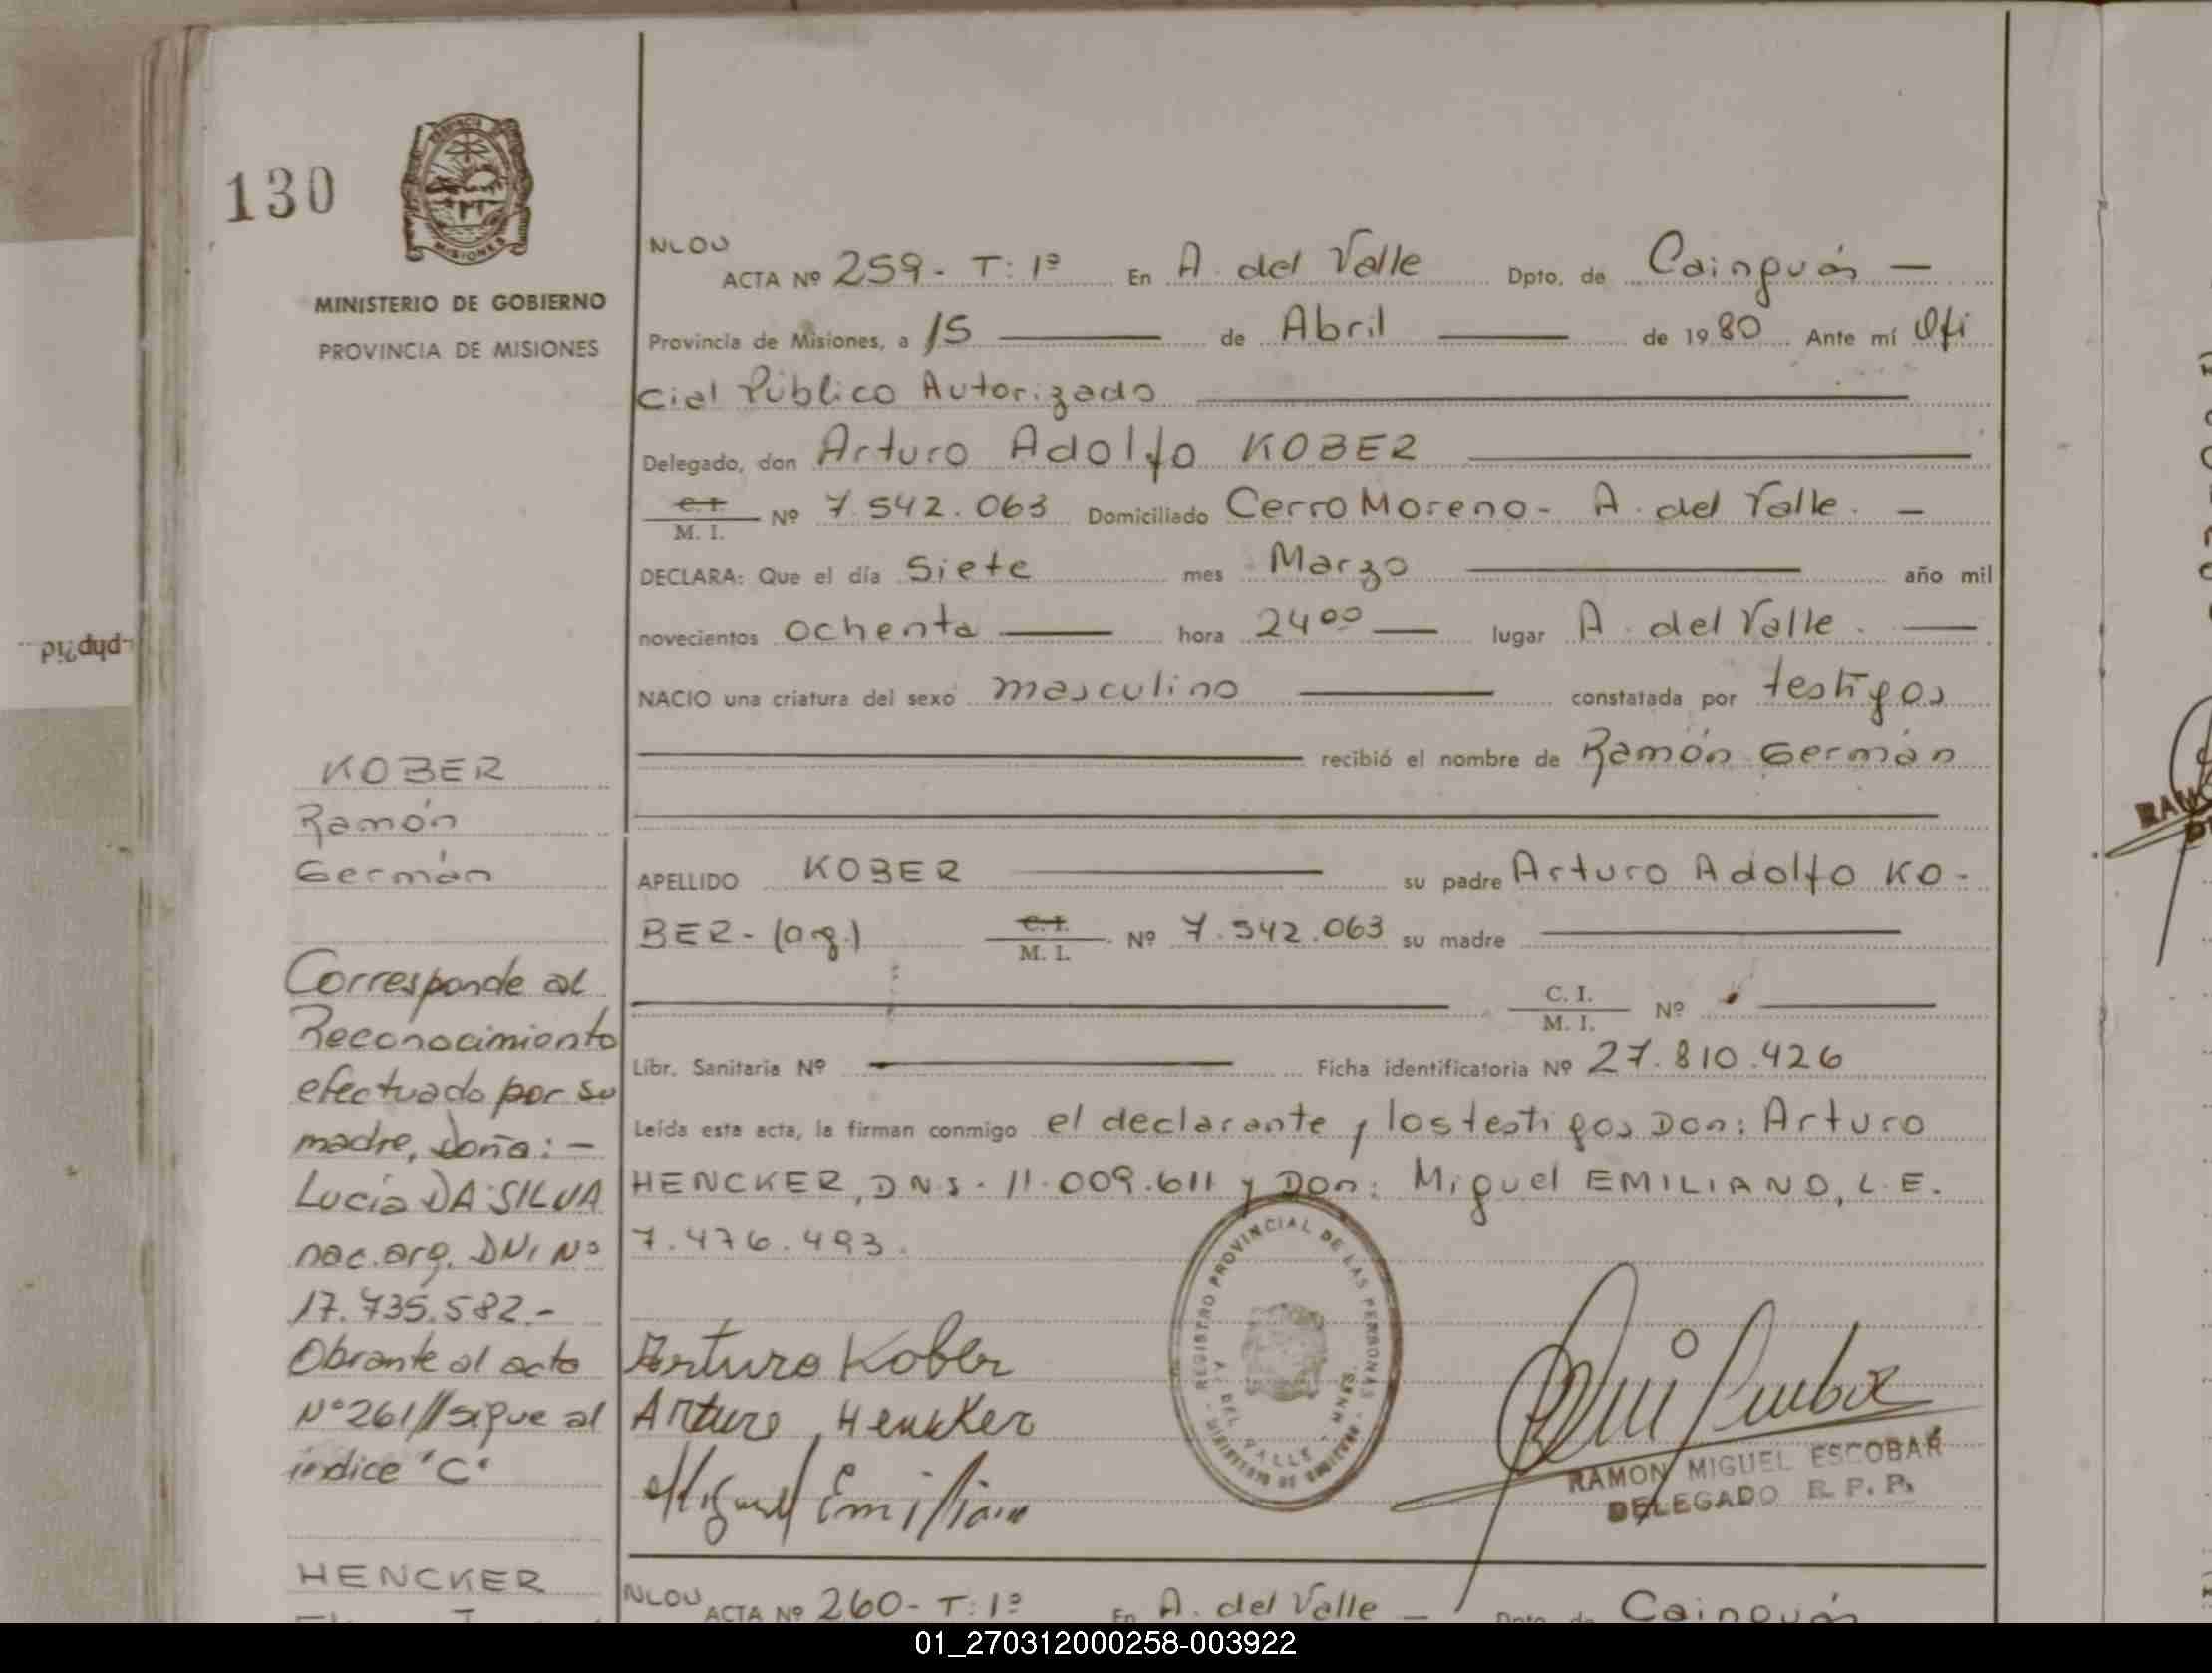 130
PROVINCIA
MISIONES
MINISTERIO DE GOBIERNO
PROVINCIA DE MISIONES
NLOU
ACTA Nº 259- T: 1º En A. del Valle Dpto. de Cainguás —
Provincia de Misiones, a 15 de Abril de 1980 Ante mí Ofi
cial Público Autorizado
Delegado, don Arturo Adolfo KOBER
C.I. / M. I. Nº 7.542.063 Domiciliado Cerro Moreno- A. del Valle. —
DECLARA: Que el día Siete mes Marzo año mil
novecientos ochenta hora 24ºº lugar A. del Valle.
NACIO una criatura del sexo masculino constatada por testigos
recibió el nombre de Ramón Germán
APELLIDO KOBER su padre Arturo Adolfo KO-
BER- (arg.) C.I. / M. I. Nº 7.542.063 su madre
C. I. / M. I. Nº
Libr. Sanitaria Nº Ficha identificatoria Nº 27.810.426
Leída esta acta, la firman conmigo el declarante y los testigos Don: Arturo
HENCKER, DNI. 11.009.611 y Don: Miguel EMILIANO, L.E.
7.476.493.
Arturo Kober
Arturo Hencker
Miguel Emiliano
REGISTRO PROVINCIAL DE LAS PERSONAS
DEL VALLE - MNES.
MINISTERIO DE GOBIERNO
RAMON MIGUEL ESCOBAR
DELEGADO R. P. P.
KOBER
Ramón
Germán
Corresponde al
Reconocimiento
efectuado por su
madre, doña: -
Lucía DA SILVA
nac. arg. DNI Nº
17.735.582.-
Obrante al acta
Nº 261//sigue al
índice "C"
HENCKER
NLOU
ACTA Nº 260- T: 1º En A. del Valle — Dpto. de Cainguás
-php?id
01_270312000258-003922